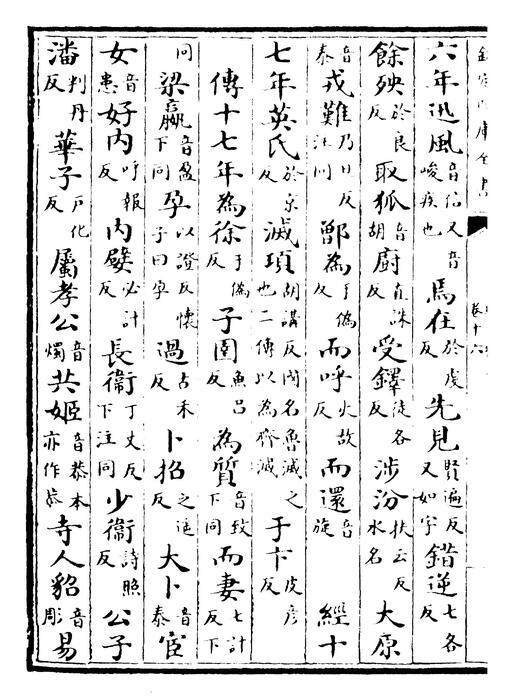 六年迅風音信又音峻疾也焉在於虔反先見賢遍反又如字錯逆七各反
餘殃於良反取狐音胡廚直誅反受鐸徒各反涉汾扶云反水名大原
音泰戎難乃旦反注同鄫為于偽反而呼火故反而還音旋經十
七年英氏於京反滅項胡講反國名魯滅之也二傳以為齊滅于卞皮彥反
傳十七年為徐于偽反子圉魚呂反為質音致下同而妻七計反下
同梁嬴音盈下同孕以證反懷子曰孕過古禾反卜招之遥反大卜音泰宦
女音患好內呼報反內嬖必計反長衞丁丈反下注同少衞詩照反公子
潘判丹反華子戶化反屬孝公音燭共姬音恭本亦作恭寺人貂音彫易
卷十六